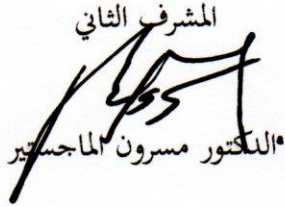 المشرف الثاني
الدكتور مسرون الماجستير